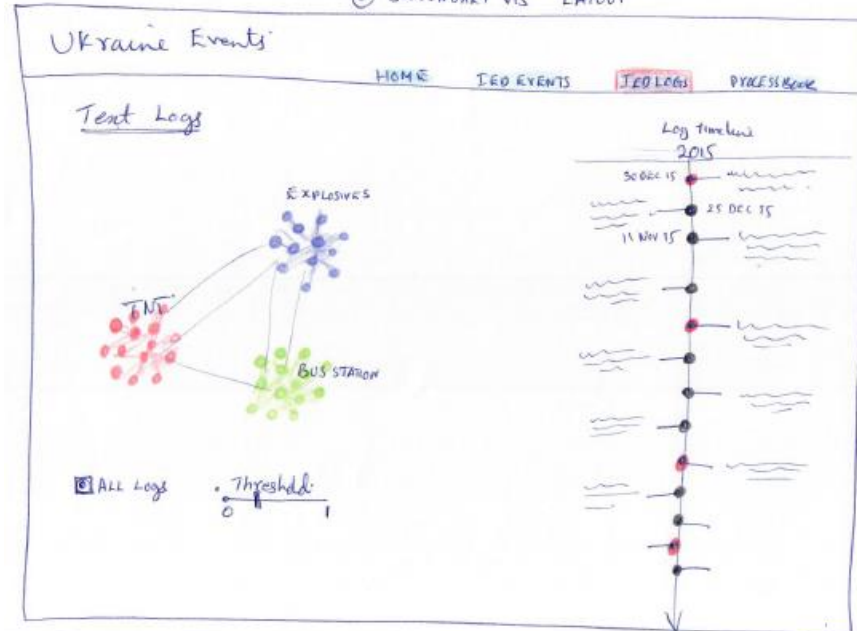 VIS LAYOUT
Ukraine Events
HOME IED EVENTS IED LOGS PROCESS BOOK
Text Logs
Log Timeline
2015
30 DEC 15
25 DEC 15
11 NOV 15
EXPLOSIVES
TNT
BUS STATION
ALL Logs
Threshold
0 1